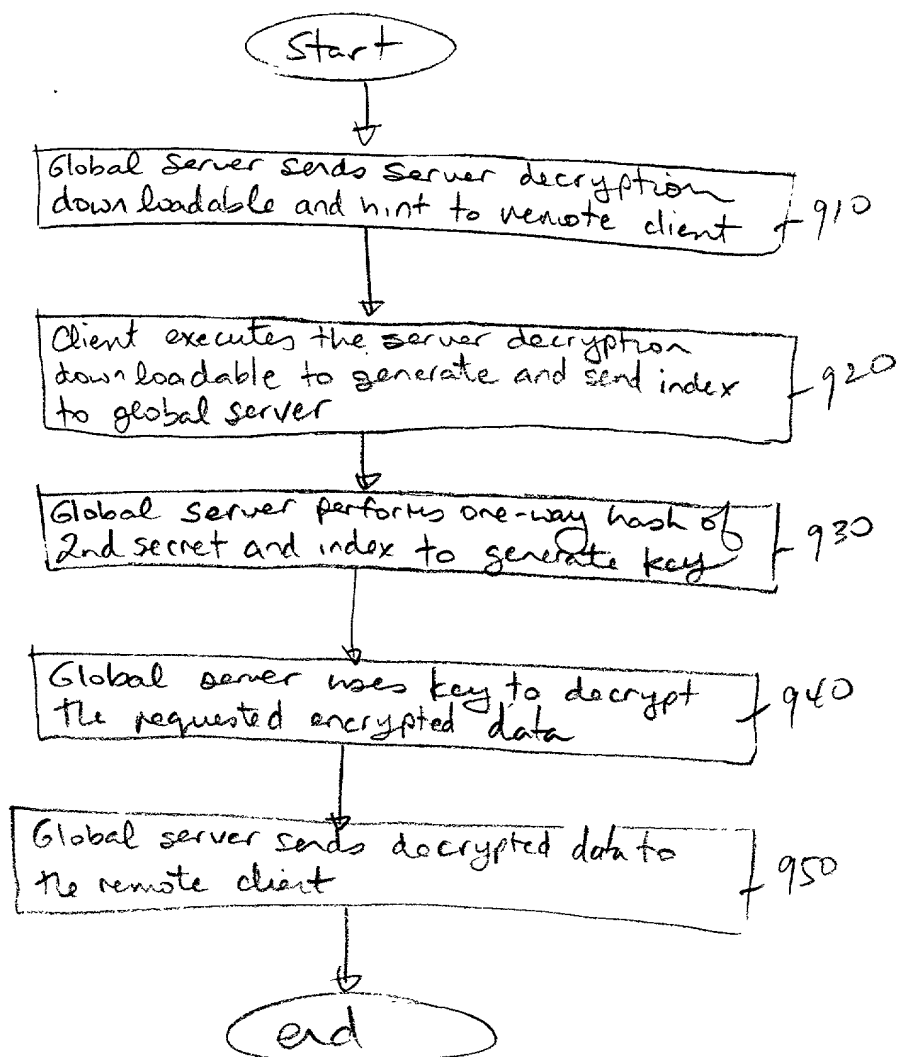 Start
Global Server sends Server decryption
downloadable and hint to remote client
910
Client executes the server decryption
downloadable to generate and send index
to global server
920
Global Server performs one-way hash of
2nd secret and index to generate key
930
Global server uses key to decrypt
the requested encrypted data
940
Global server sends decrypted data to
the remote client
950
end